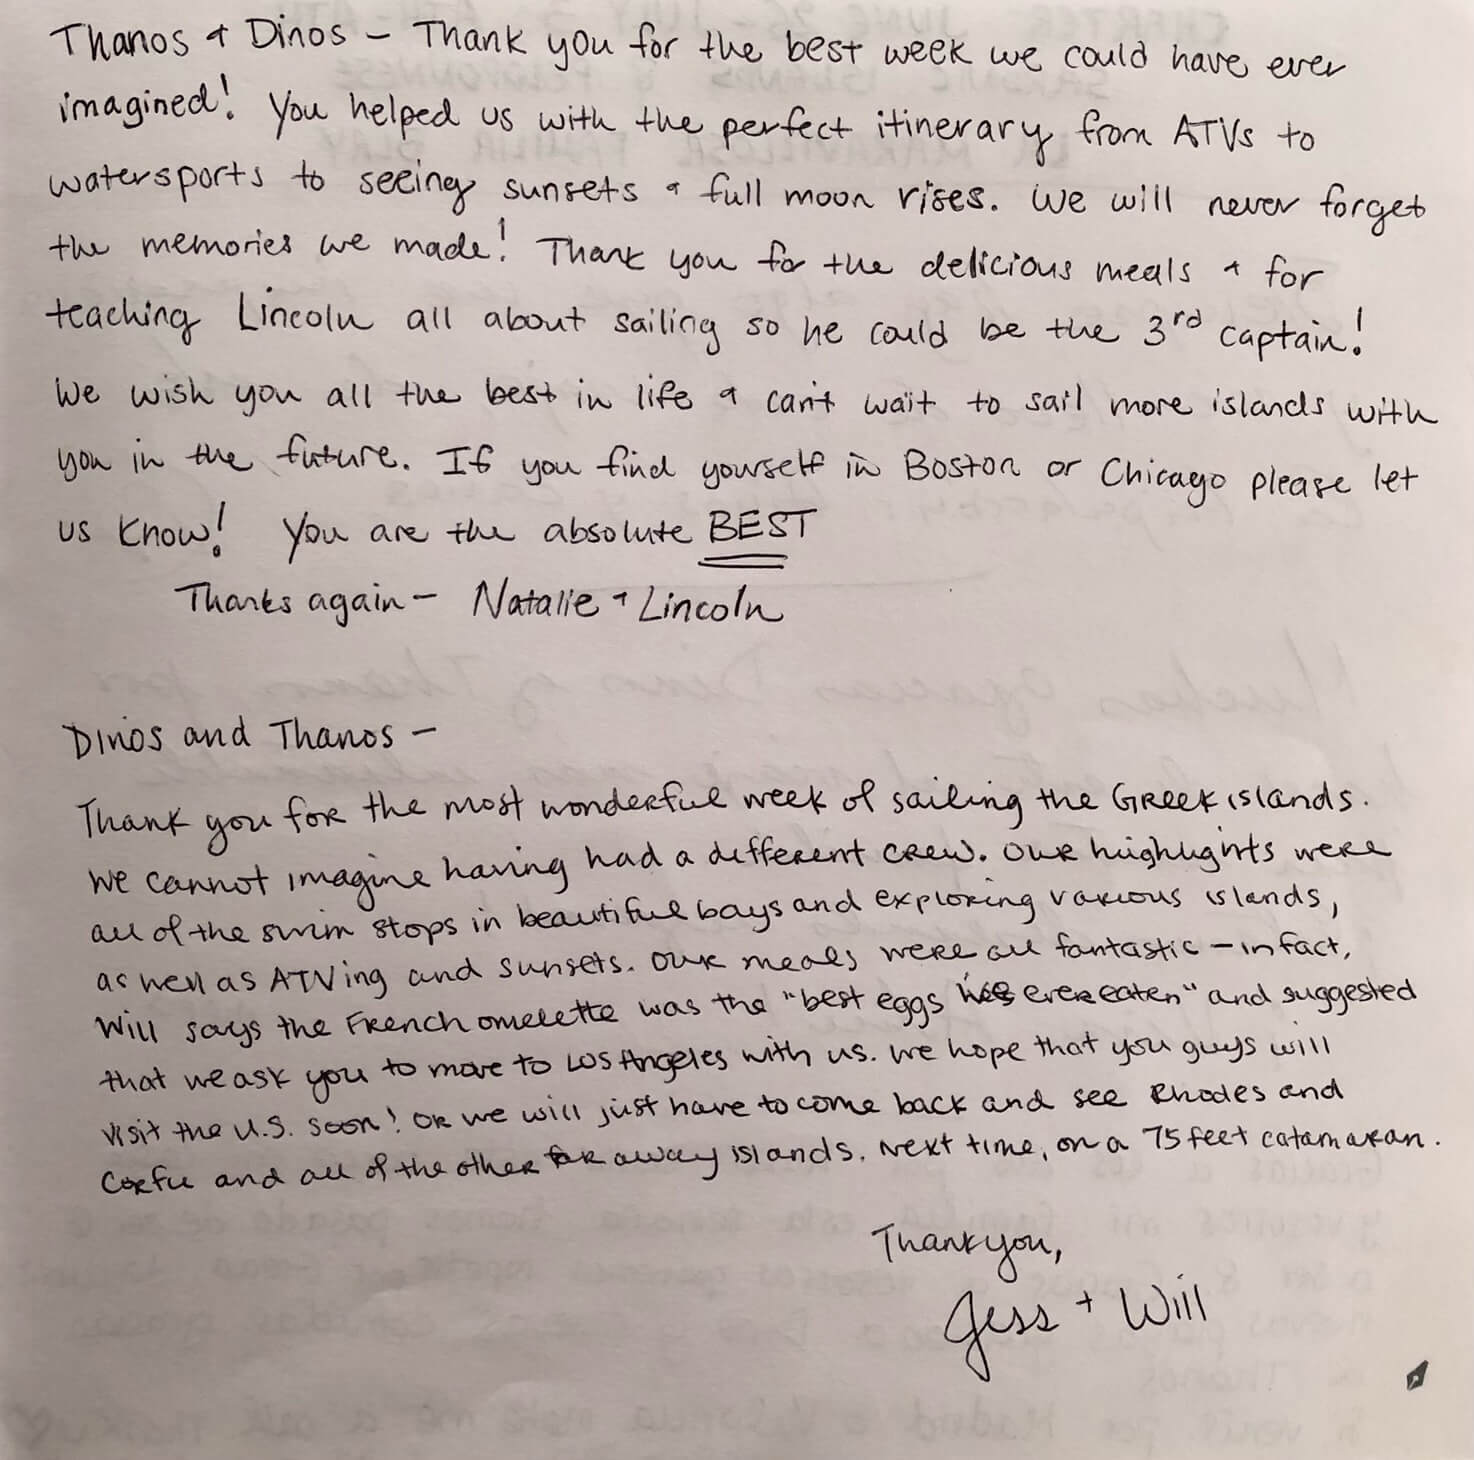 Thanos & Dinos – Thank you for the best week we could have ever
imagined! You helped us with the perfect itinerary from ATVs to
watersports to seeing sunsets & full moon rises. We will never forget
the memories we made! Thank you for the delicious meals & for
teaching Lincoln all about sailing so he could be the 3rd captain!
We wish you all the best in life & can't wait to sail more islands with
you in the future. If you find yourself in Boston or Chicago please let
us know! You are the absolute BEST
Thanks again – Natalie & Lincoln
Dinos and Thanos –
Thank you for the most wonderful week of sailing the Greek islands.
We cannot imagine having had a different crew. Our highlights were
all of the swim stops in beautiful bays and exploring various islands,
as well as ATVing and sunsets. Our meals were all fantastic – in fact,
Will says the French omelette was the "best eggs he's ever eaten" and suggested
that we ask you to move to Los Angeles with us. We hope that you guys will
visit the U.S. soon! Or we will just have to come back and see Rhodes and
Corfu and all of the other far away islands. Next time, on a 75 feet catamaran.
Thank you,
Jess + Will